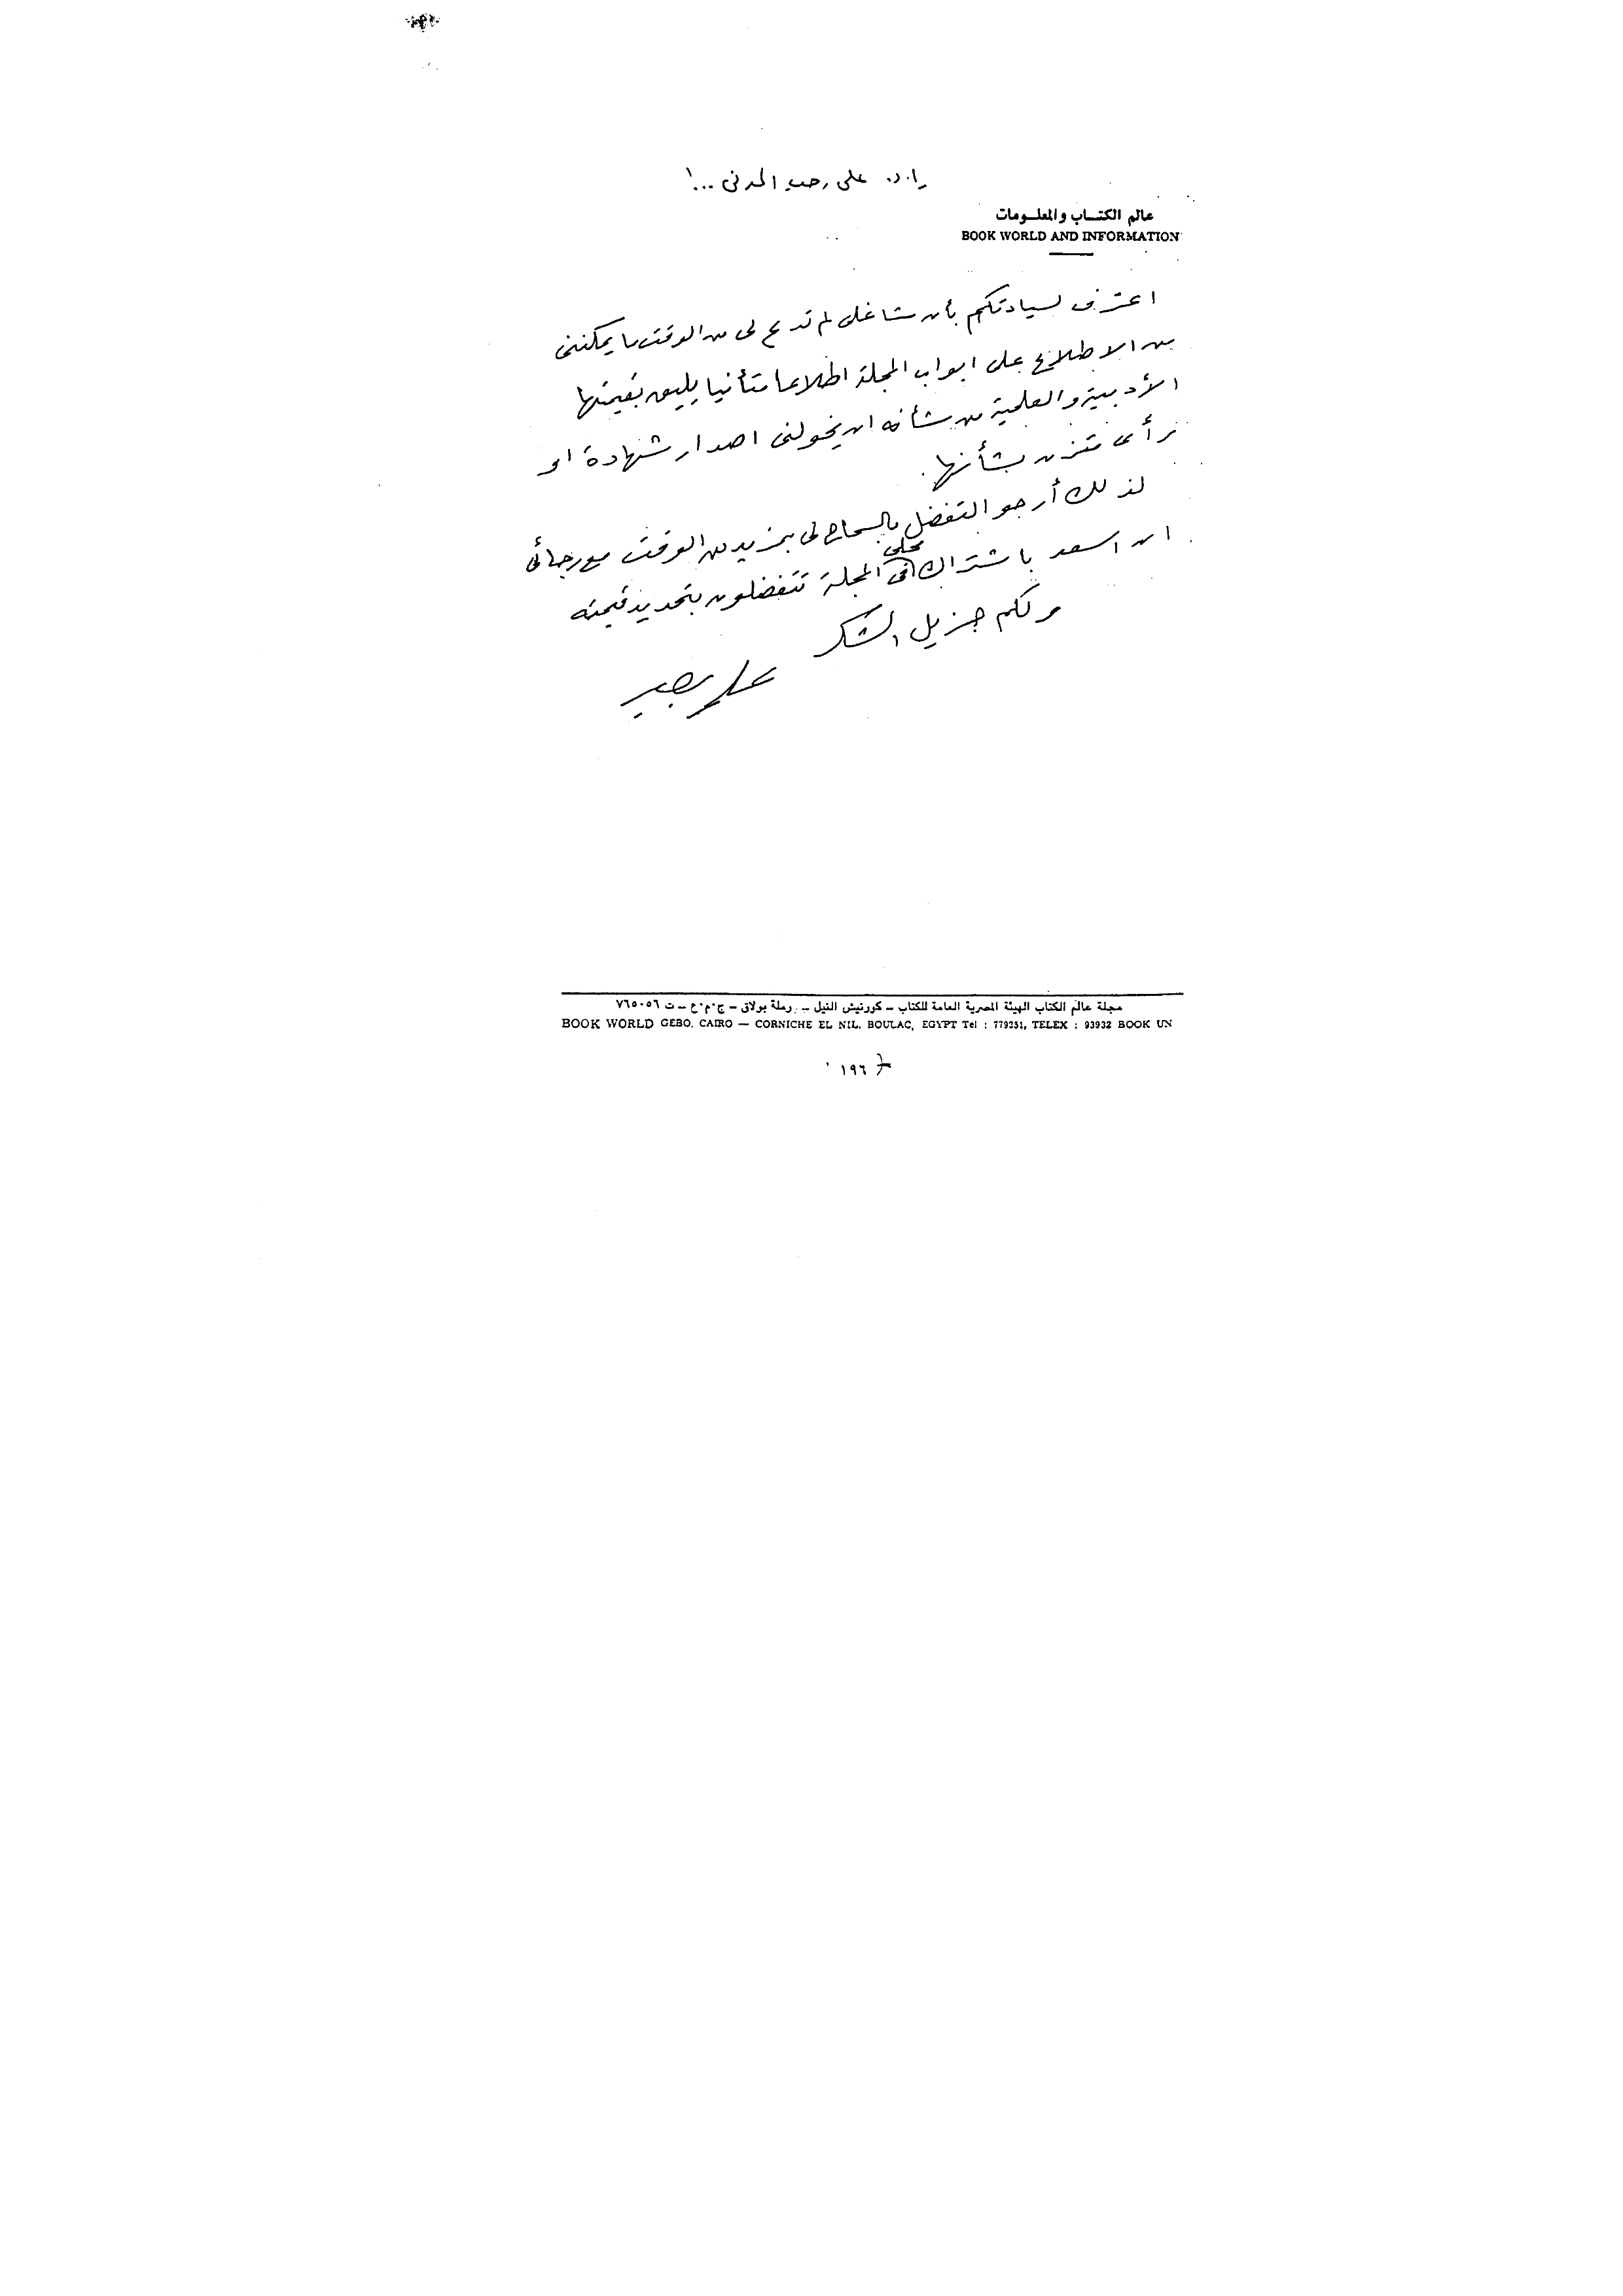 ا.د. على رجب المدنى ...
عالم الكتاب والمعلومات
BOOK WORLD AND INFORMATION
اعترف لسيادتكم بأن مشاغلى لم تدع لى من الوقت ما يمكننى
من الاطلاع على ابواب المجلة اطلاعا متأنيا يليق بقيمتها
الأدبية والعلمية من شأنه ان يخولنى اصدار شهادة او
رأى متزن بشأنها.
لذلك أرجو التفضل بالسماح لى بمزيد من الوقت مع رجائى
ان اسعد باشتراك محلى فى المجلة تتفضلون بتحديد قيمته
ولكم جزيل الشكر
مجلة عالم الكتاب الهيئة المصرية العامة للكتاب – كورنيش النيل – رملة بولاق – ج.م.ع – ت ٧٦٥٠٥٦
BOOK WORLD GEBO. CAIRO — CORNICHE EL NIL. BOULAC, EGYPT Tel : 779251, TELEX : 93932 BOOK UN
١٩٦